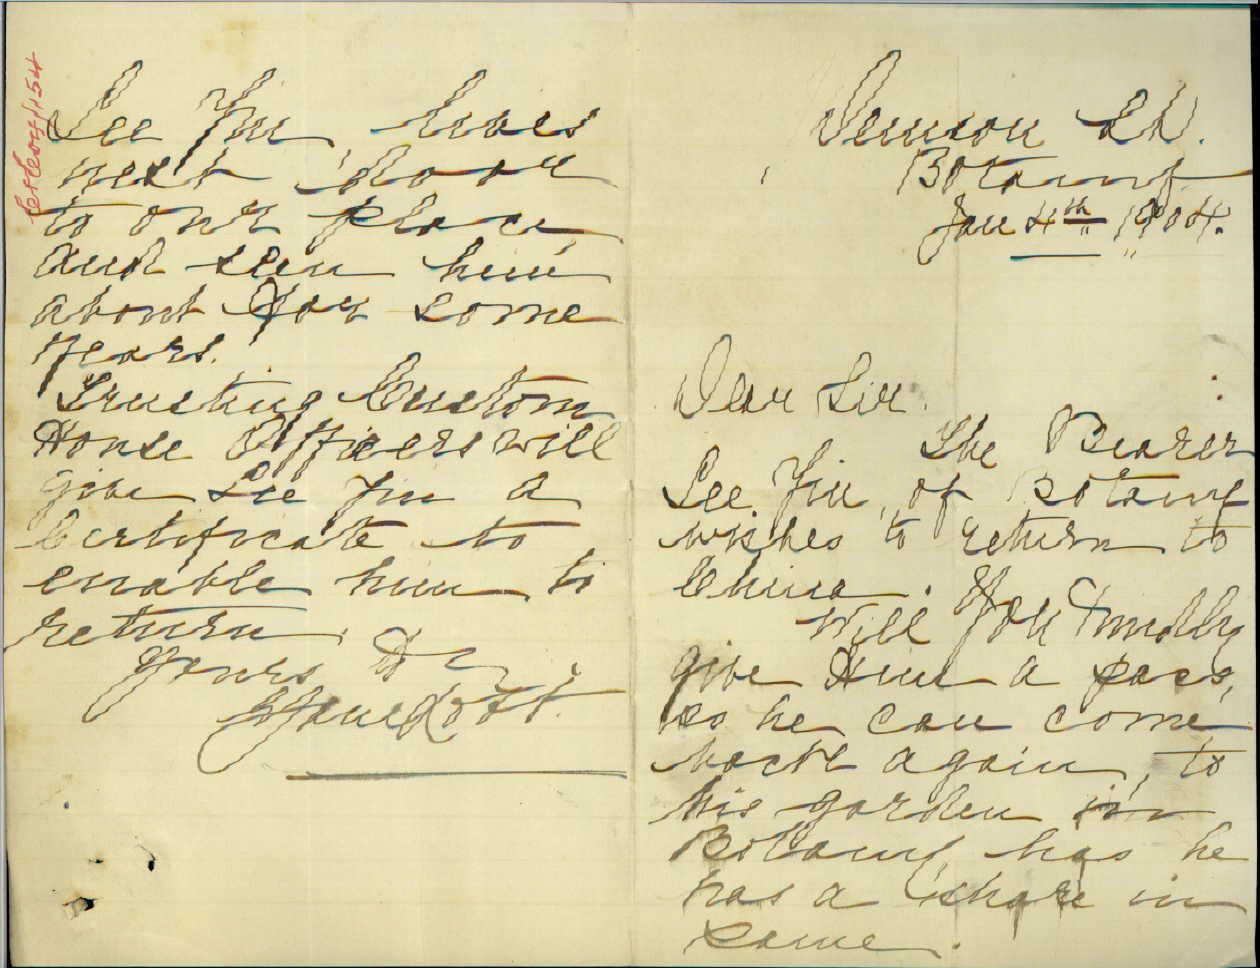 Denison St.
Botany
Jan 4th 1904.
Dear Sir.
The Bearer
Gee Yin, of Botany
wishes to return to
China.
Will You Kindly
give Him a pass,
so he can come
back again, to
his garden in
Botany has he
has a share in
same.
Gee Yin, lives
next door
to our place
and seen him
about for some
years.
Trusting Custom
House Officers will
give Gee Yin a
Certificate to
enable him to
return.
Yours